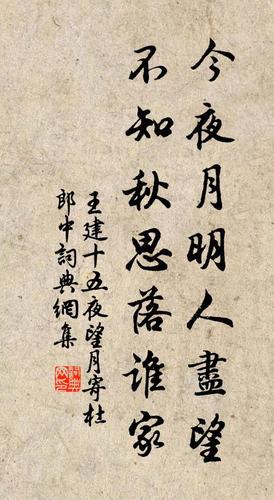 今夜月明人盡望
不知秋思落誰家
王建十五夜望月寄杜
郎中詞典網集